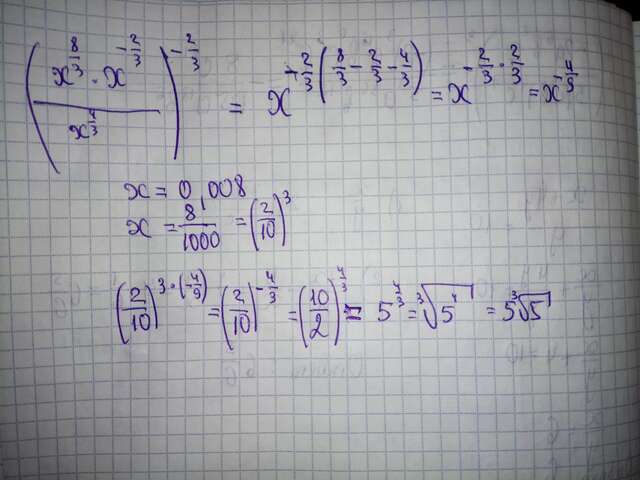 (x^(8/3) · x^(-2/3) / x^(4/3))^(-2/3) = x^(-2/3(8/3 - 2/3 - 4/3)) = x^(-2/3 · 2/3) = x^(-4/9)
x = 0,008
x = 8/1000 = (2/10)^3
(2/10)^(3·(-4/9)) = (2/10)^(-4/3) = (10/2)^(4/3) = 5^(4/3) = ∛(5^4) = 5∛5